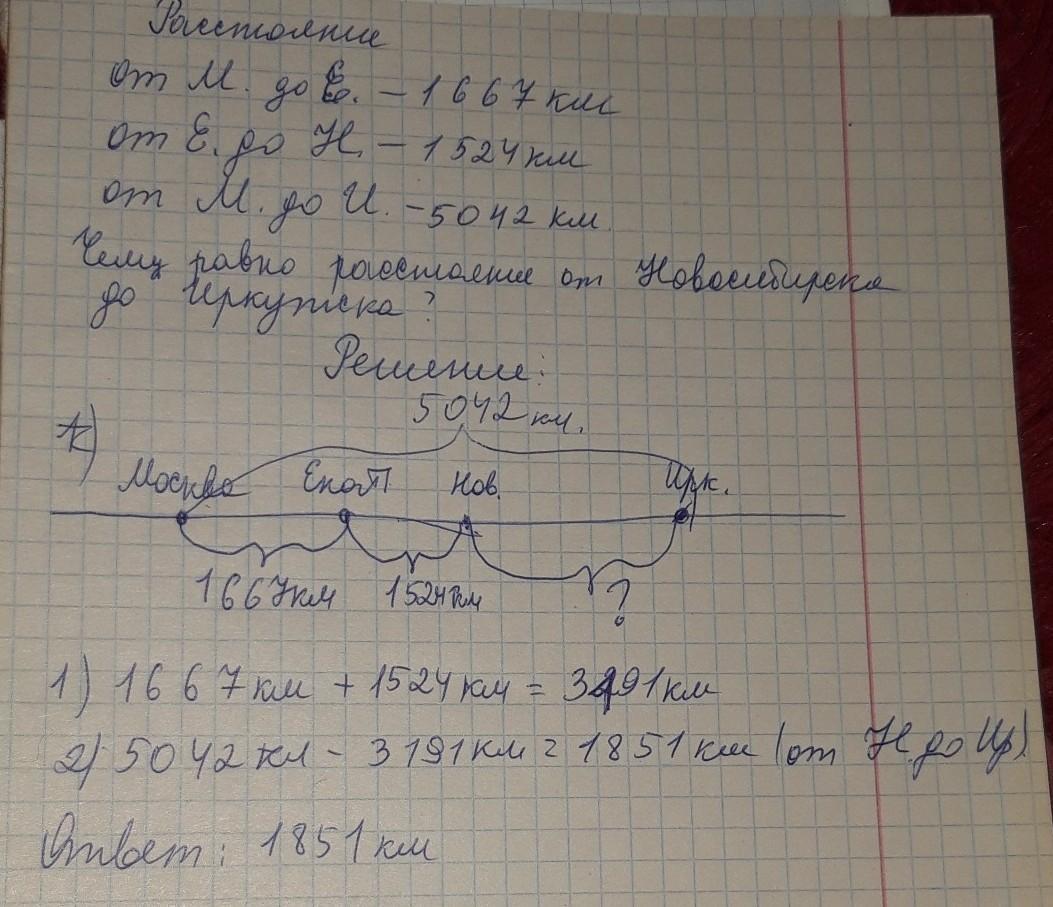 Расстояние
от М. до Е. – 1667 км
от Е. до Н. – 1524 км
от М. до И. – 5042 км
Чему равно расстояние от Новосибирска
до Иркутска?
Решение:
5042 км.
Москва Екат Нов. Ирк.
1667 км 1524 км ?
1) 1667 км + 1524 км = 3191 км
2) 5042 км – 3191 км = 1851 км (от Н. до Ир)
Ответ: 1851 км